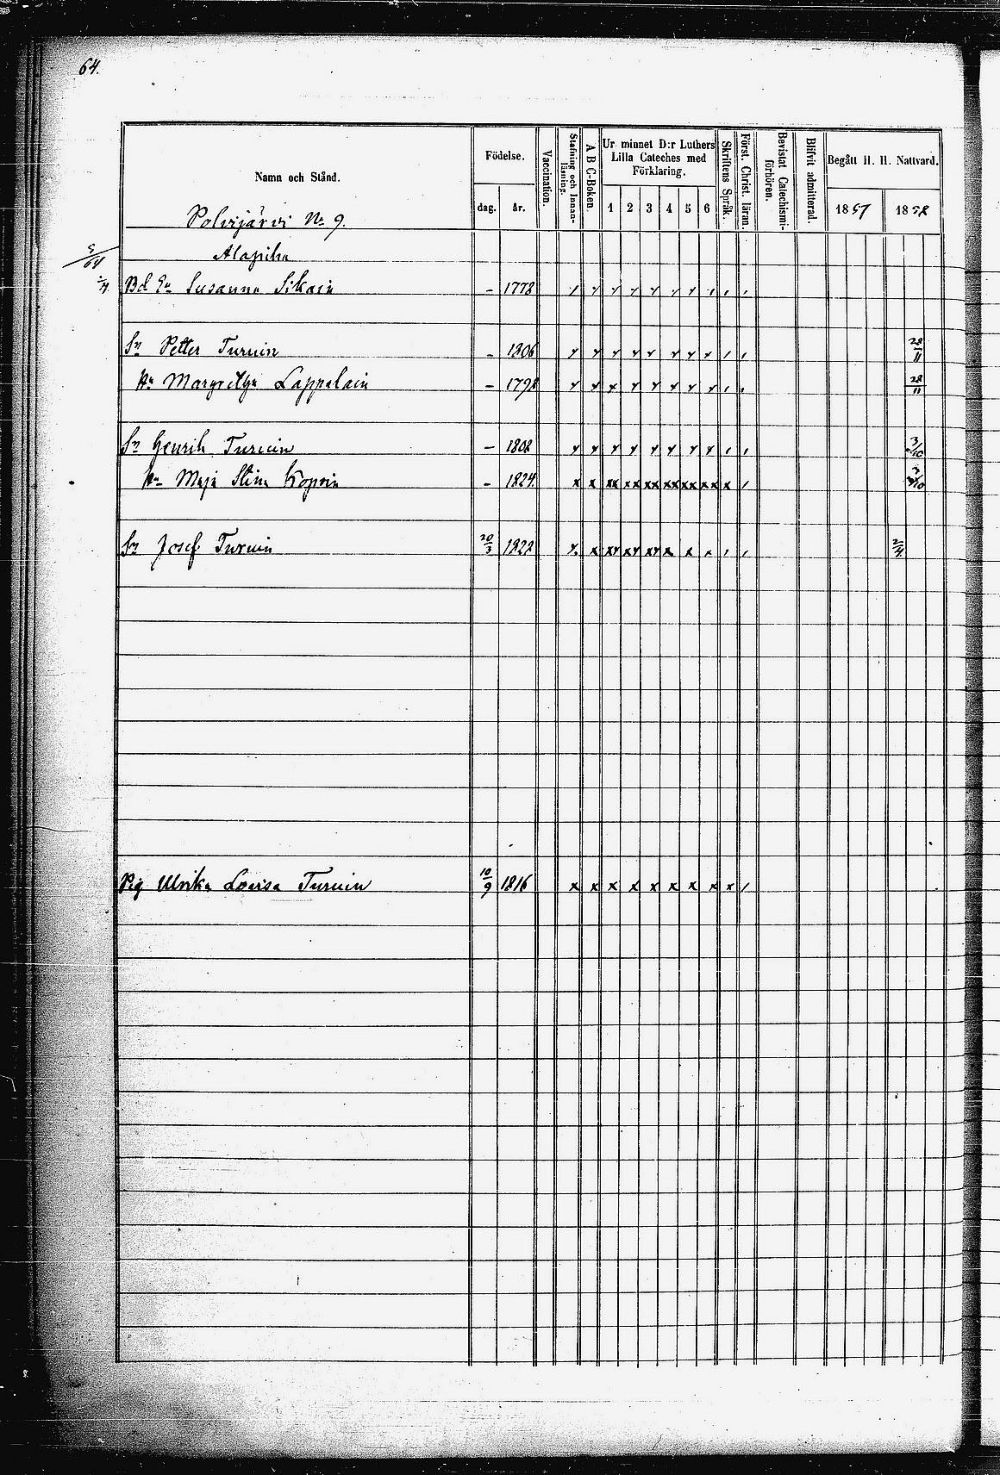 64.
Namn och Stånd.
Födelse.
dag.
år.
Vaccination.
Stafning och Innan-läsning.
A B C-Boken.
Ur minnet D:r Luthers Lilla Cateches med Förklaring.
1 2 3 4 5 6
Skriftens Språk.
Först. Christ. läran.
Bevistat Catechismi-förhören.
Blifvit admitterad.
Begått H. H. Nattvard.
1857 1858
Polvijärvi No 9.
Alapiha
Bd Susanna Sikain - 1778
Sn Petter Turuin - 1806 28/11
Hu Margretha Lappalain - 1798 28/11
Sn Henrik Turuin - 1808 3/10
Hu Maja Stina Kopoin - 1824. 3/10
Sn Josef Turuin 20/3 1822 2/4
Pig Ulrika Lovisa Turuin 10/9 1816